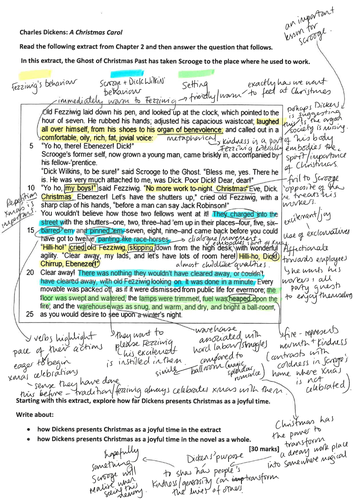 an important
Charles Dickens: A Christmas Carol
for Scrooge.
Read the following extract from Chapter 2 and then answer the question that follows.
In this extract, the Ghost of Christmas Past has taken Scrooge to the place where he used to work.
Fezziwig's behaviour
Scrooge + Dick Wilkins' behaviour
Setting
exactly how we want to feel at Christmas
immediately warm to Fezziwig
Old Fezziwig laid down his pen, and looked up at the clock, which pointed to the
hour of seven. He rubbed his hands; adjusted his capacious waistcoat; laughed
all over himself, from his shoes to his organ of benevolence; and called out in a
comfortable, oily, rich, fat, jovial voice:
metaphorical
5 "Yo ho, there! Ebenezer! Dick!"
Scrooge's former self, now grown a young man, came briskly in, accompanied by
his fellow-'prentice.
"Dick Wilkins, to be sure!" said Scrooge to the Ghost. "Bless me, yes. There he
is. He was very much attached to me, was Dick. Poor Dick! Dear, dear!"
10 "Yo ho, my boys!" said Fezziwig. "No more work to-night. Christmas Eve, Dick.
Christmas, Ebenezer! Let's have the shutters up," cried old Fezziwig, with a
sharp clap of his hands, "before a man can say Jack Robinson!"
You wouldn't believe how those two fellows went at it! They charged into the
street with the shutters–one, two, three–had 'em up in their places–four, five, six–
15 barred 'em and pinned 'em–seven, eight, nine–and came back before you could
have got to twelve, panting like race-horses.
"Hilli-ho!" cried old Fezziwig, skipping down from the high desk, with wonderful
agility. "Clear away, my lads, and let's have lots of room here! Hilli-ho, Dick!
Chirrup, Ebenezer!"
20 Clear away! There was nothing they wouldn't have cleared away, or couldn't
have cleared away, with old Fezziwig looking on. It was done in a minute. Every
movable was packed off, as if it were dismissed from public life for evermore; the
floor was swept and watered, the lamps were trimmed, fuel was heaped upon the
fire; and the warehouse was as snug, and warm, and dry, and bright a ball-room,
25 as you would desire to see upon a winter's night.
kindness is a part of his body
perhaps Dickens is suggesting this is the organ society is missing
Fezziwig literally embodies the spirit/importance of Christmas
foil to Scrooge
excitement/joy
use of exclamatives
Affectionate towards employees
wants his workers + all party guests to enjoy themselves
almost childlike
verbs highlight pace of their actions
eager to begin xmas celebrations
sense they have done this before - tradition/Fezziwig always celebrates xmas with them
they want to please Fezziwig
his excitement is instilled in them
simile
warehouse associated with word labour/struggle
compared to ballroom
fire - represents warmth + kindness
(contrasts with coldness in Scrooge's home where Xmas is not celebrated)
Starting with this extract, explore how far Dickens presents Christmas as a joyful time.
Write about:
• how Dickens presents Christmas as a joyful time in the extract
• how Dickens presents Christmas as a joyful time in the novel as a whole.
[30 marks]
Christmas has the power to transform a dreary work place into somewhere magical
hopefully something Scrooge will realise
Dickens' purpose
to show how people's kindness/generosity can transform the lives of others.